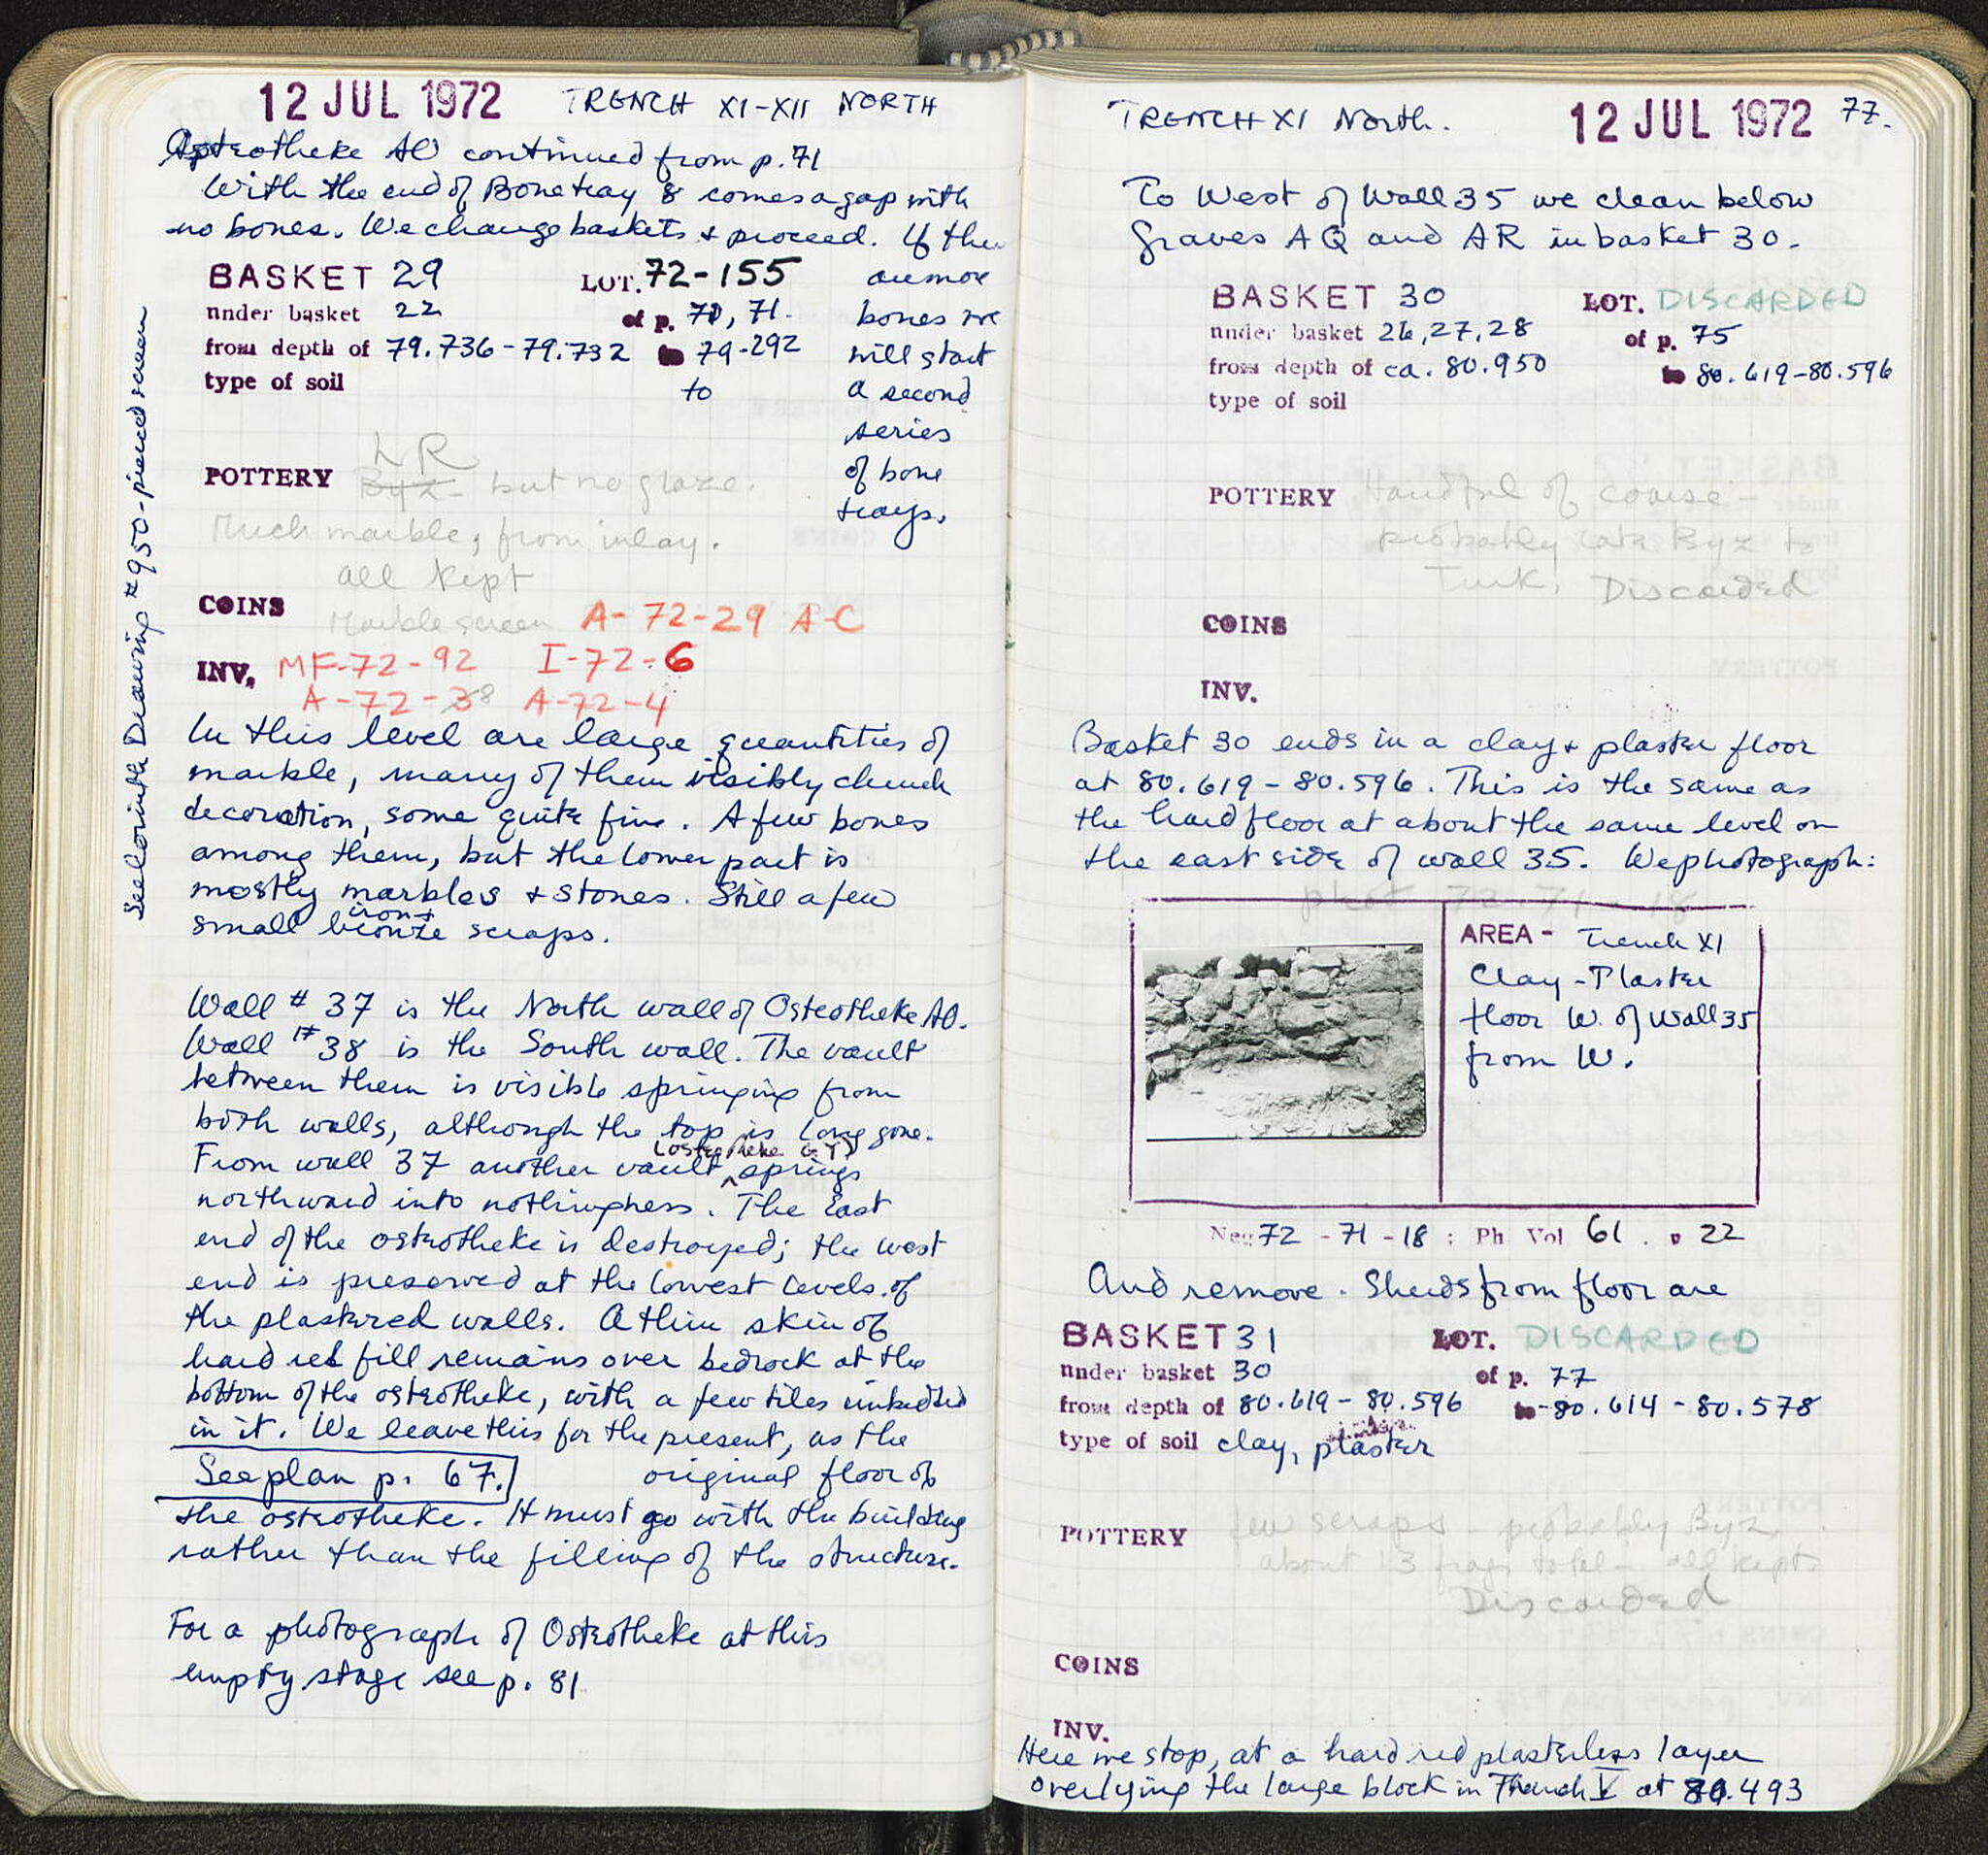 12 JUL 1972 TRENCH XI-XII NORTH
Osteotheke AO continued from p. 71
With the end of Bone tray 8 comes a gap with
no bones. We change baskets & proceed. If there
are more
bones we
will start
a second
series
of bone
trays.
BASKET 29 LOT. 72-155
under basket 22 of p. 70, 71.
from depth of 79.736-79.732 to 79.292
type of soil to
LR
POTTERY Byz- but no glaze.
Much marble, from inlay.
all kept
COINS
Marble screen A-72-29 A-C
INV. MF-72-92 I-72-6
A-72-38 A-72-4
See Corinth Drawing #950 - pierced screen
In this level are large quantities of
marble, many of them visibly church
decoration, some quite fine. A few bones
among them, but the lower part is
mostly marbles & stones. Still a few
iron +
small bronze scraps.
Wall # 37 is the North wall of Osteotheke AO.
Wall # 38 is the South wall. The vault
between them is visible springing from
both walls, although the top is long gone.
(osteotheke GY)
From wall 37 another vault ^ springs
northward into nothingness. The East
end of the osteotheke is destroyed; the west
end is preserved at the lowest levels of
the plastered walls. A thin skin of
hard red fill remains over bedrock at the
bottom of the osteotheke, with a few tiles imbedded
in it. We leave this for the present, as the
See plan p. 67. original floor of
the osteotheke. It must go with the building
rather than the filling of the structure.
For a photograph of Osteotheke at this
empty stage see p. 81
TRENCH XI North. 12 JUL 1972 77.
To West of Wall 35 we clean below
Graves AQ and AR in basket 30.
BASKET 30 LOT. DISCARDED
under basket 26, 27, 28 of p. 75
from depth of ca. 80.950 to 80.619-80.596
type of soil
POTTERY Handful of coarse
probably late Byz to
Turk. Discarded
COINS
INV.
Basket 30 ends in a clay + plaster floor
at 80.619-80.596. This is the same as
the hard floor at about the same level on
the east side of wall 35. We photograph:
phot 72-71-18
AREA - Trench XI
Clay-Plaster
floor W. of Wall 35
from W.
Neg 72 - 71 - 18 : Ph Vol 61 . p 22
And remove. Sherds from floor are
BASKET 31 LOT. DISCARDED
under basket 30 of p. 77
from depth of 80.619 - 80.596 to 80.614 - 80.578
type of soil clay, plaster
POTTERY few scraps - probably Byz
about 13 frags total - all kept
Discarded
COINS
INV.
Here we stop, at a hard red plasterless layer
overlying the large block in Trench V at 80.493